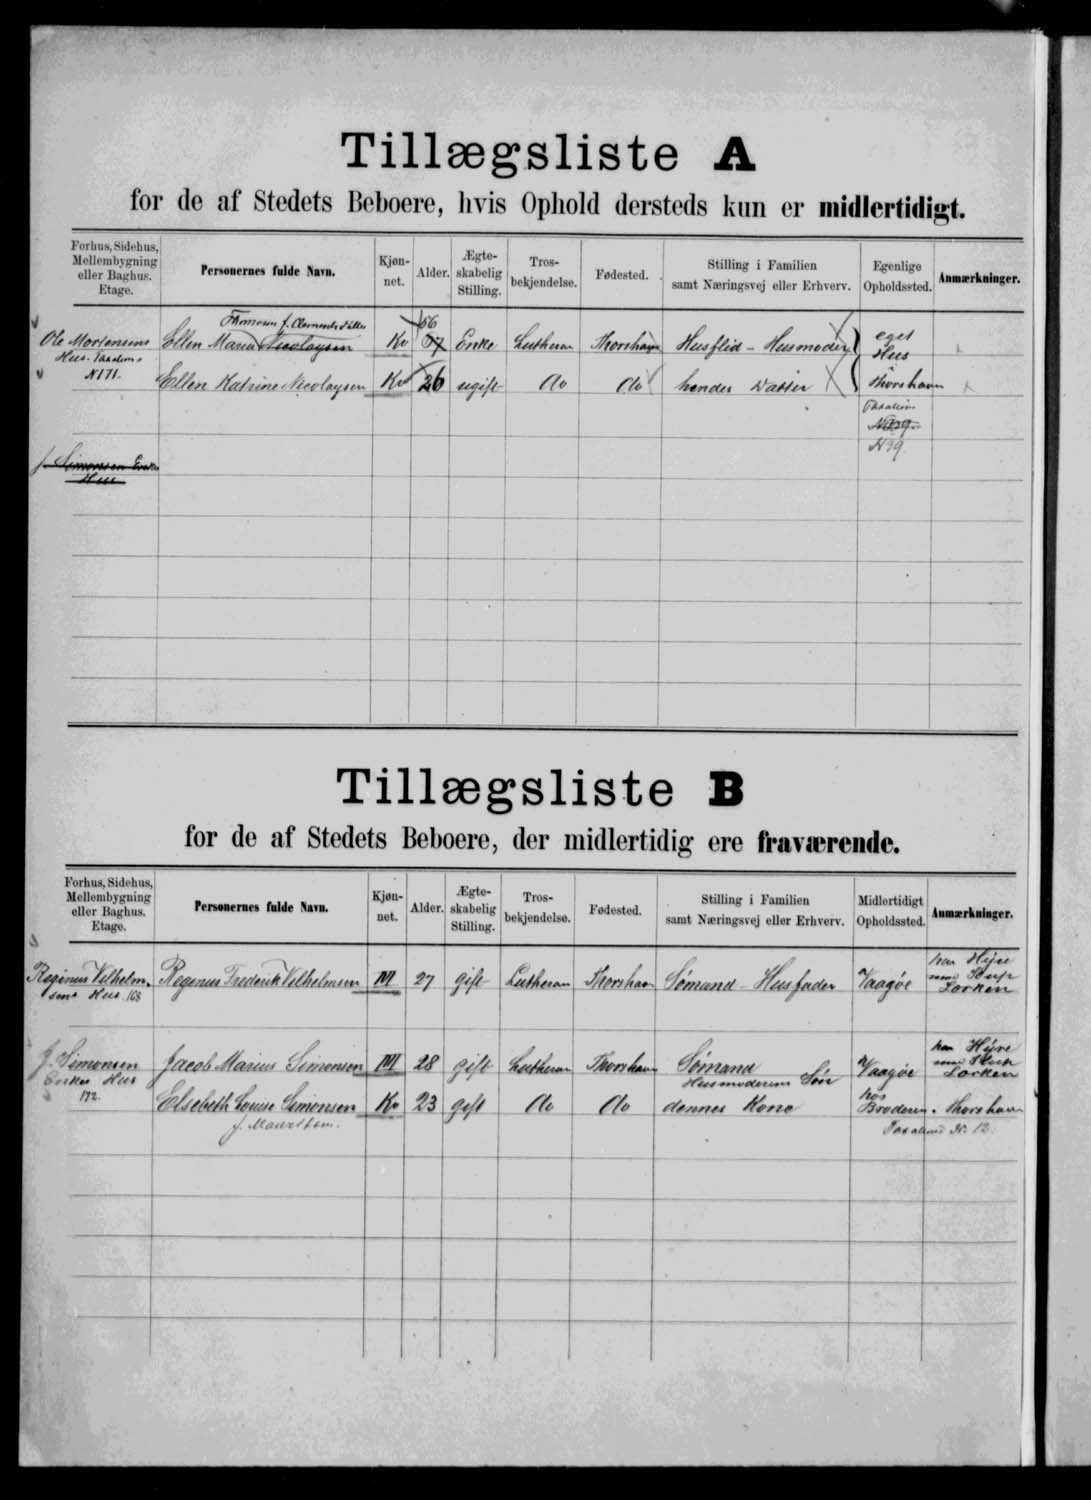 Tillægsliste A
for de af Stedets Beboere, hvis Ophold dersteds kun er midlertidigt.
Forhus, Sidehus, Mellembygning eller Baghus. Etage. Personernes fulde Navn. Kjøn-net. Alder. Ægte-skabelig Stilling. Tros-bekjendelse. Fødested. Stilling i Familien samt Næringsvej eller Erhverv. Egenlige Opholdssted. Anmærkninger.
Thomsen f. Clementsdatter 56
Ole Mortensens Ellen Maria Nicolaysen Kv 57 Enke Lutheran Thorshavn Husflid - Husmoder eget
Hus. Hus
N 171. Ellen Katrine Nicolaysen Kv 26 ugift do do hendes Datter Thorshavn
N 39.
J. Simonsen Enkes
Hus
Tillægsliste B
for de af Stedets Beboere, der midlertidig ere fraværende.
Forhus, Sidehus, Mellembygning eller Baghus. Etage. Personernes fulde Navn. Kjøn-net. Alder. Ægte-skabelig Stilling. Tros-bekjendelse. Fødested. Stilling i Familien samt Næringsvej eller Erhverv. Midlertidigt Opholdssted. Anmærkninger.
Reginus Vilhelm- Regenus Frederik Vilhelmsen M 27 gift Lutheran Thorshavn Sømand - Husfader Vaagøe
sens Hus 168
J. Simonsen Jacob Marius Simonsen M 28 gift Lutheran Thorshavn Sømand Vaagøe
Enkes Hus Husmoderens Søn
172. Elsebeth Louise Simonsen Kv 23 gift do do dennes Kone hos Broderen i Thorshavn
N. 12.